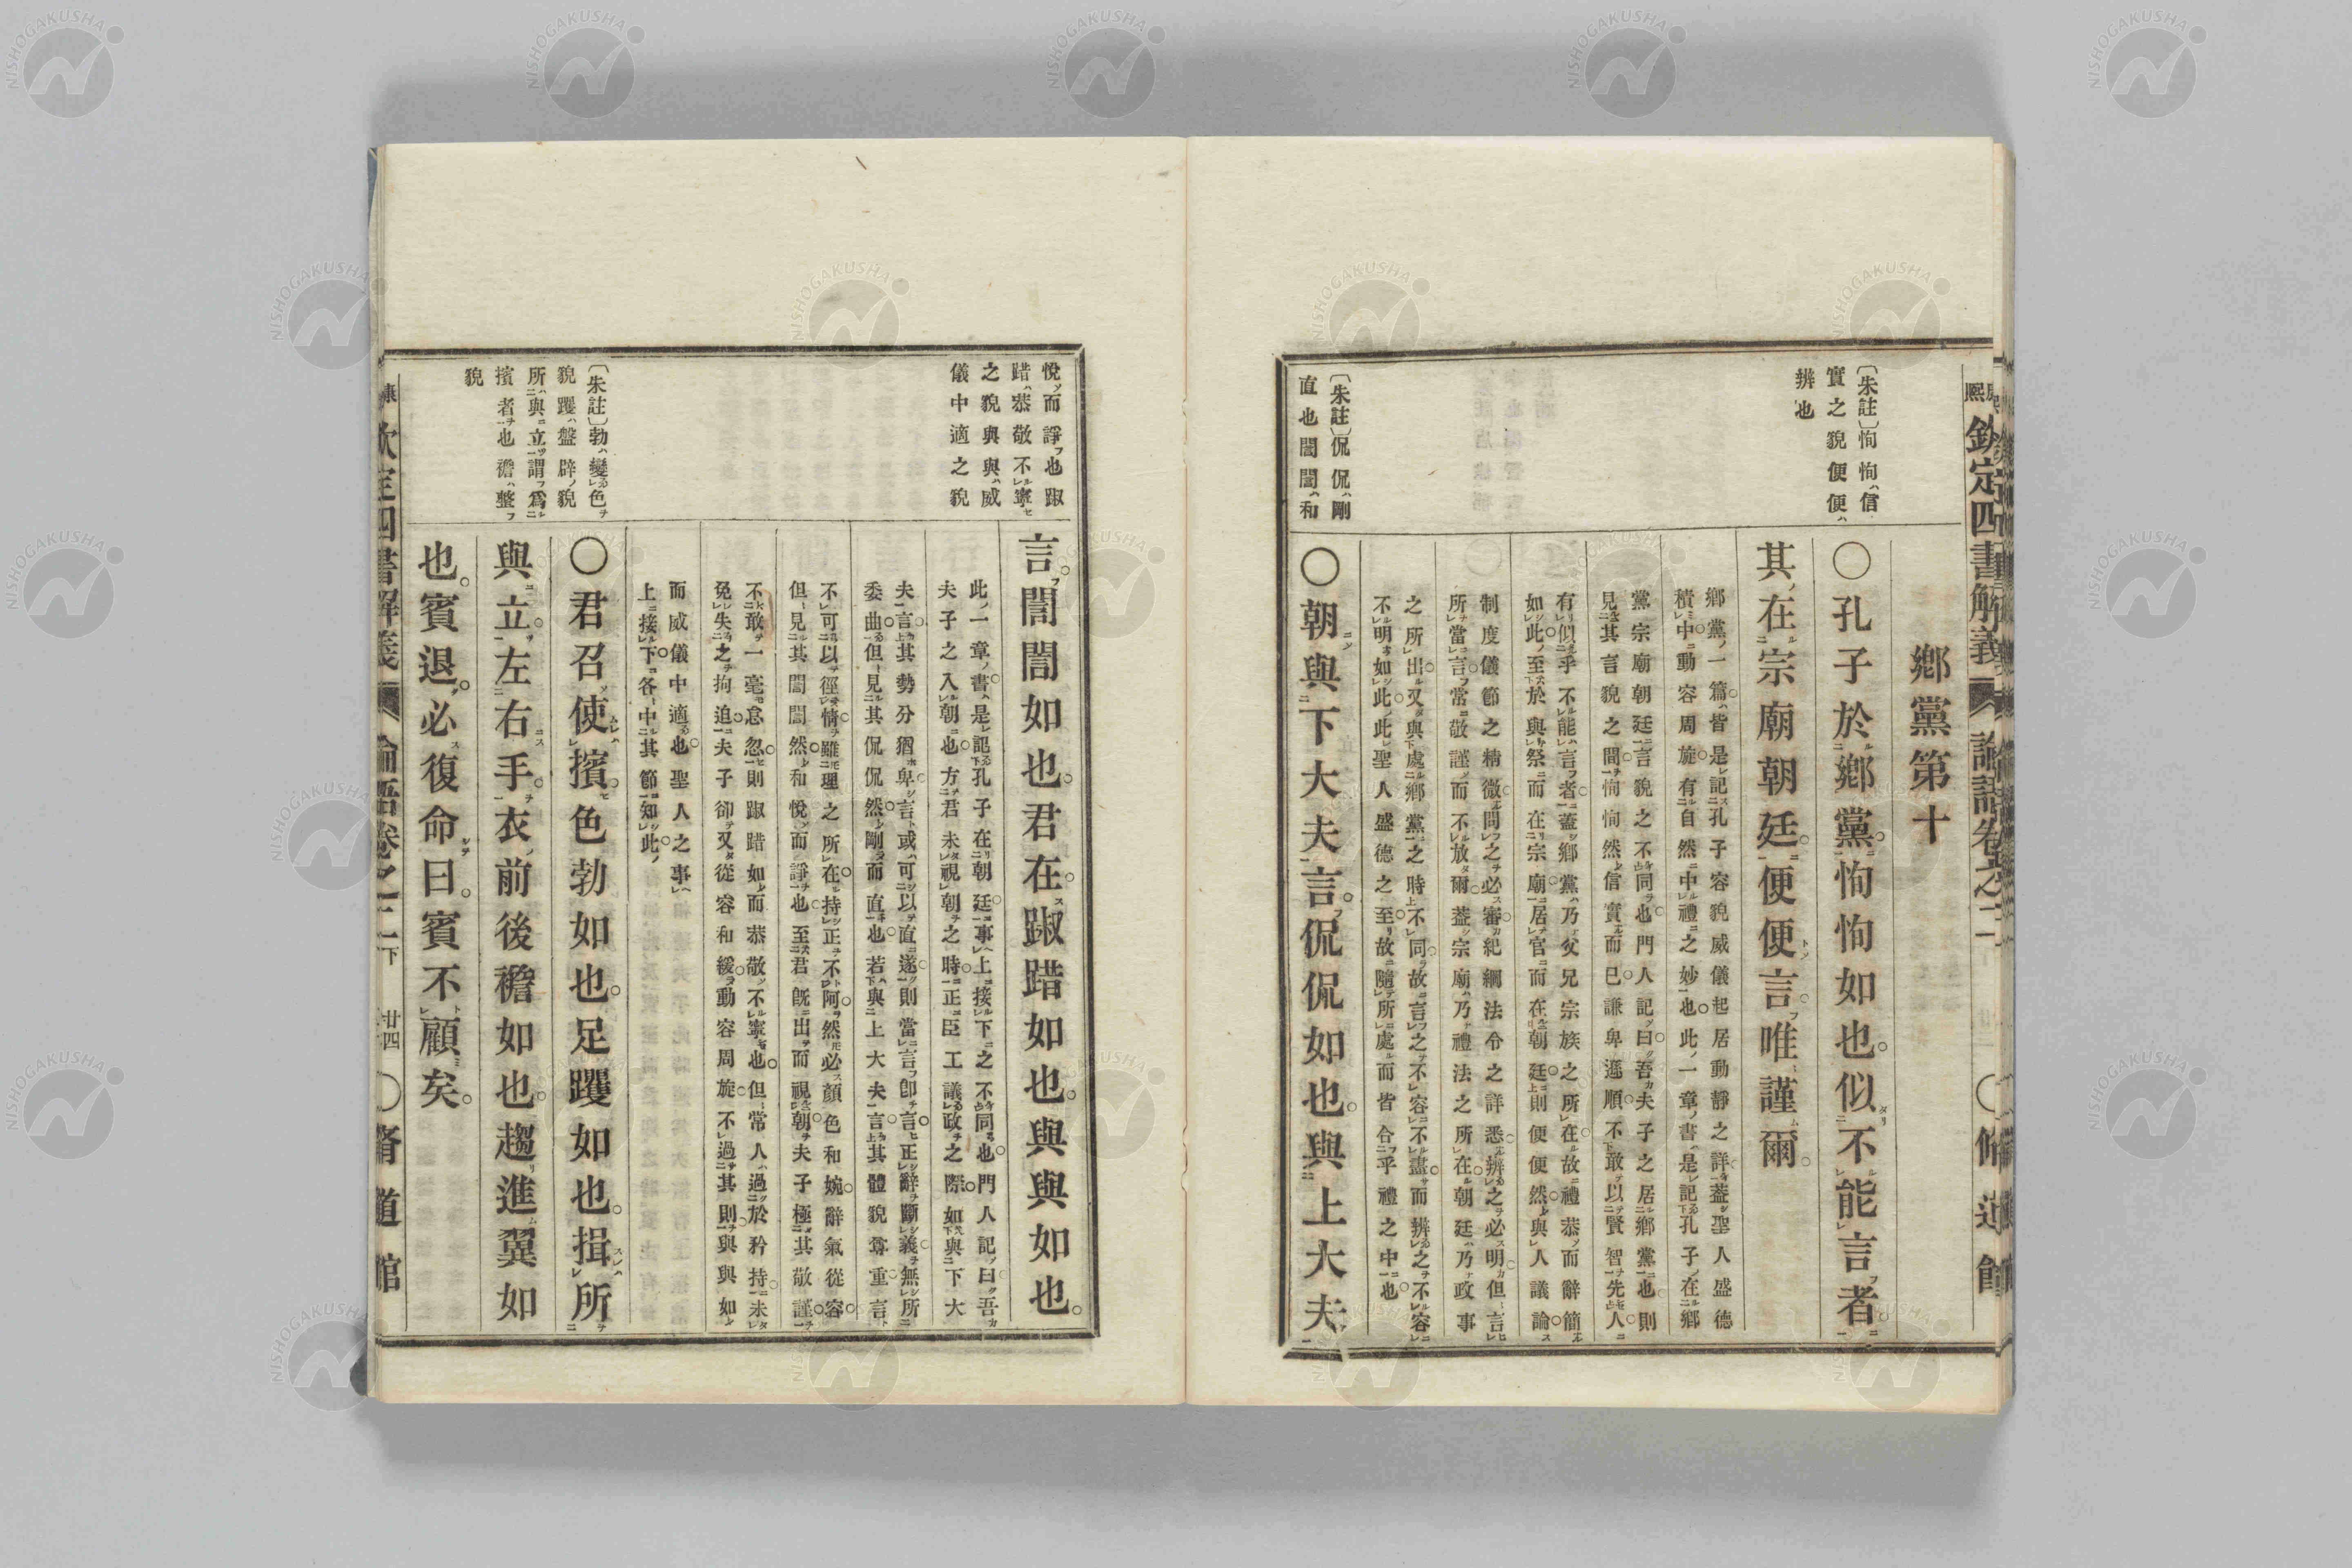 鄉黨第十
〔朱註〕恂恂ハ信
實之貌便便ハ
辨也
○孔子於鄉黨恂恂如也似不能言者
其在宗廟朝廷便便言唯謹爾
鄉黨ノ一篇ハ皆是記孔子容貌威儀起居動靜之詳蓋聖人盛德
積中動容周旋有自然中禮之妙也此一章書是記孔子在鄉
黨宗廟朝廷言貌之不同也門人記曰吾夫子之居鄉黨也則
見其言貌之間恂恂然信實而已謙卑遜順不敢以賢智先人
有似乎不能言者蓋鄉黨乃父兄宗族之所在故禮恭而辭簡
如此至於與祭而在宗廟居官而在朝廷則便便然與人議論
制度儀節之精微問之必審紀綱法令之詳悉辨之必明但言
所當言常敬謹而不放爾蓋宗廟乃禮法之所在朝廷乃政事
之所出又與處鄉黨之時不同故言之不容不盡而辨之不容
不明如此此聖人盛德之至故隨所處而皆合乎禮之中也
〔朱註〕侃侃ハ剛
直也誾誾ハ和
○朝與下大夫言侃侃如也與上大夫
悅而諍也踧
踖ハ恭敬不寧
之貌與與ハ威
儀中適之貌
言誾誾如也君在踧踖如也與與如也
此一章書是記孔子在朝廷事上接下之不同也門人記曰吾
夫子之入朝也方君未視朝之時正臣工議政之際如與下大
夫言其勢分猶卑言或可以直遂則當言卽言正辭斷義無所
委曲但見其侃侃然剛而直也若與上大夫言其體貌尊重言
不可以徑情雖理之所在持正不阿然必顏色和婉辭氣從容
但見其誾誾然和悅而諍也至君旣出而視朝夫子極其敬謹
不敢一毫怠忽則踧踖如而恭敬不寧也但常人過於矜持未
免失之拘迫夫子卻又從容和緩動容周旋不過其則與與如
而威儀中適也聖人之事
上接下各中其節如此
〔朱註〕勃ハ變色
貌躩ハ盤辟貌
所與立謂爲
擯者也襜ハ整
貌
○君召使擯色勃如也足躩如也揖所
與立左右手衣前後襜如也趨進翼如
也賓退必復命曰賓不顧矣
欽定四書解義 論語卷之二下 廿四 ○脩道館